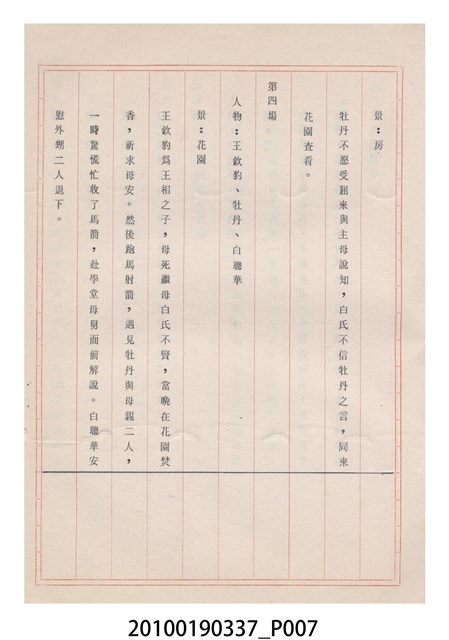 景：房
牡丹不愿受屈來與主母說知，白氏不信牡丹之言，同來
花園查看。
第四場：
人物：王欽豹、牡丹、白聰華
景：花園
王欽豹為王相之子，母死繼母白氏不賢，當晚在花園焚
香，祈求母安。然後跑馬射箭，遇見牡丹與母親二人，
一時驚慌忙收了馬箭，赴學堂母舅面前解說。白聰華安
慰外甥二人退下。
20100190337_P007